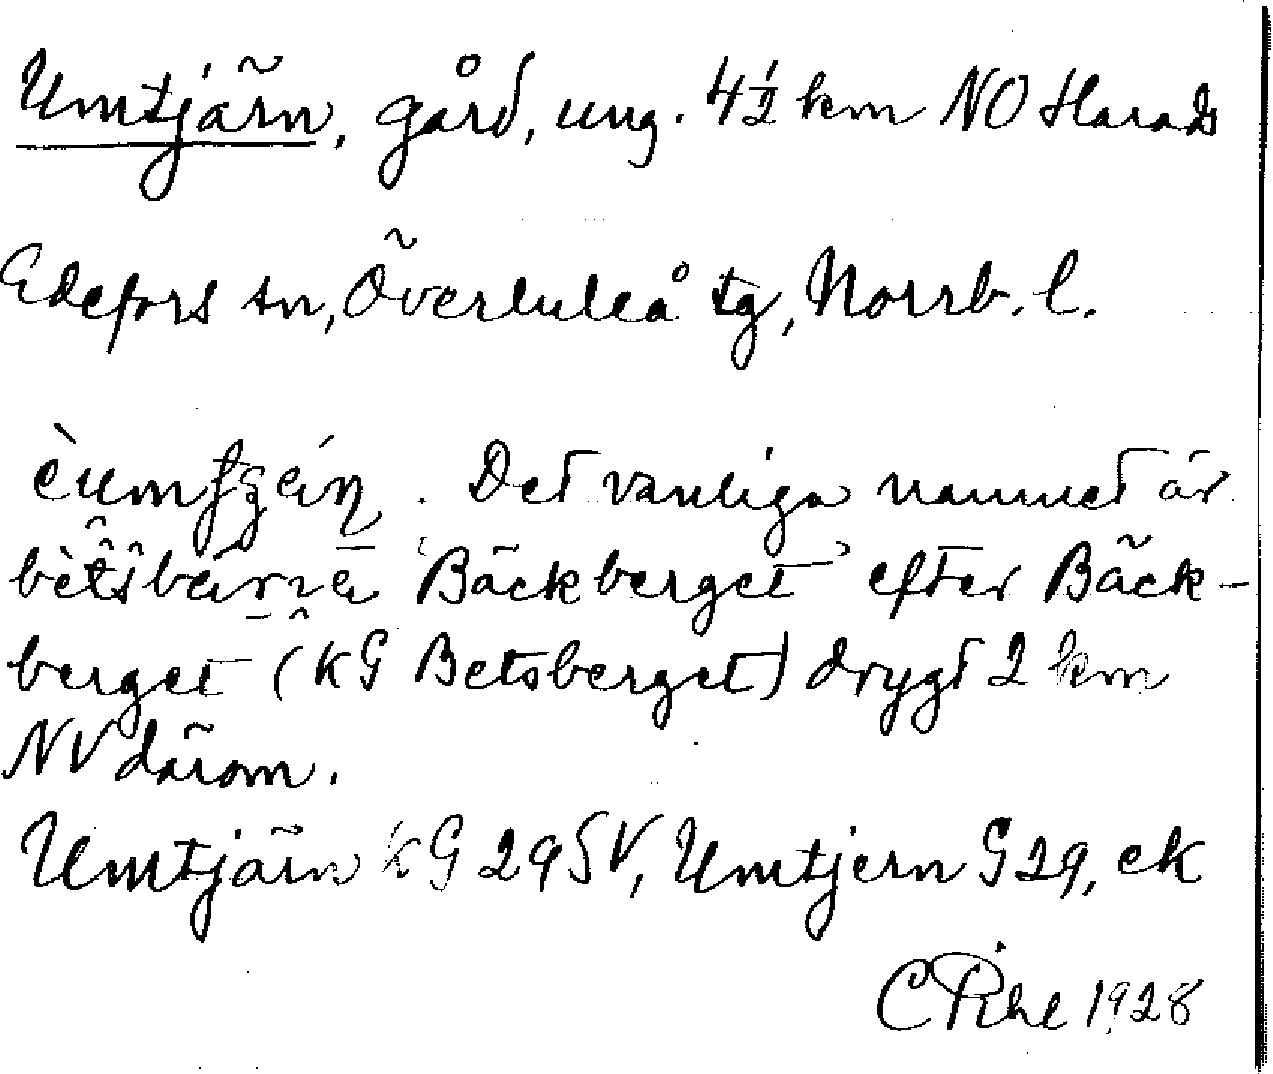 Umtjärn, gård, ung. 4½ km NO Harads
Edefors sn, Överluleå tg, Norrb. l.
. Det vanliga namnet är
'Bäckberget' efter Bäck-
berget (KG Betsberget) drygt 2 km
NV därom.
Umtjärn KG 29 SV, Umtjern G 29, ek
1928